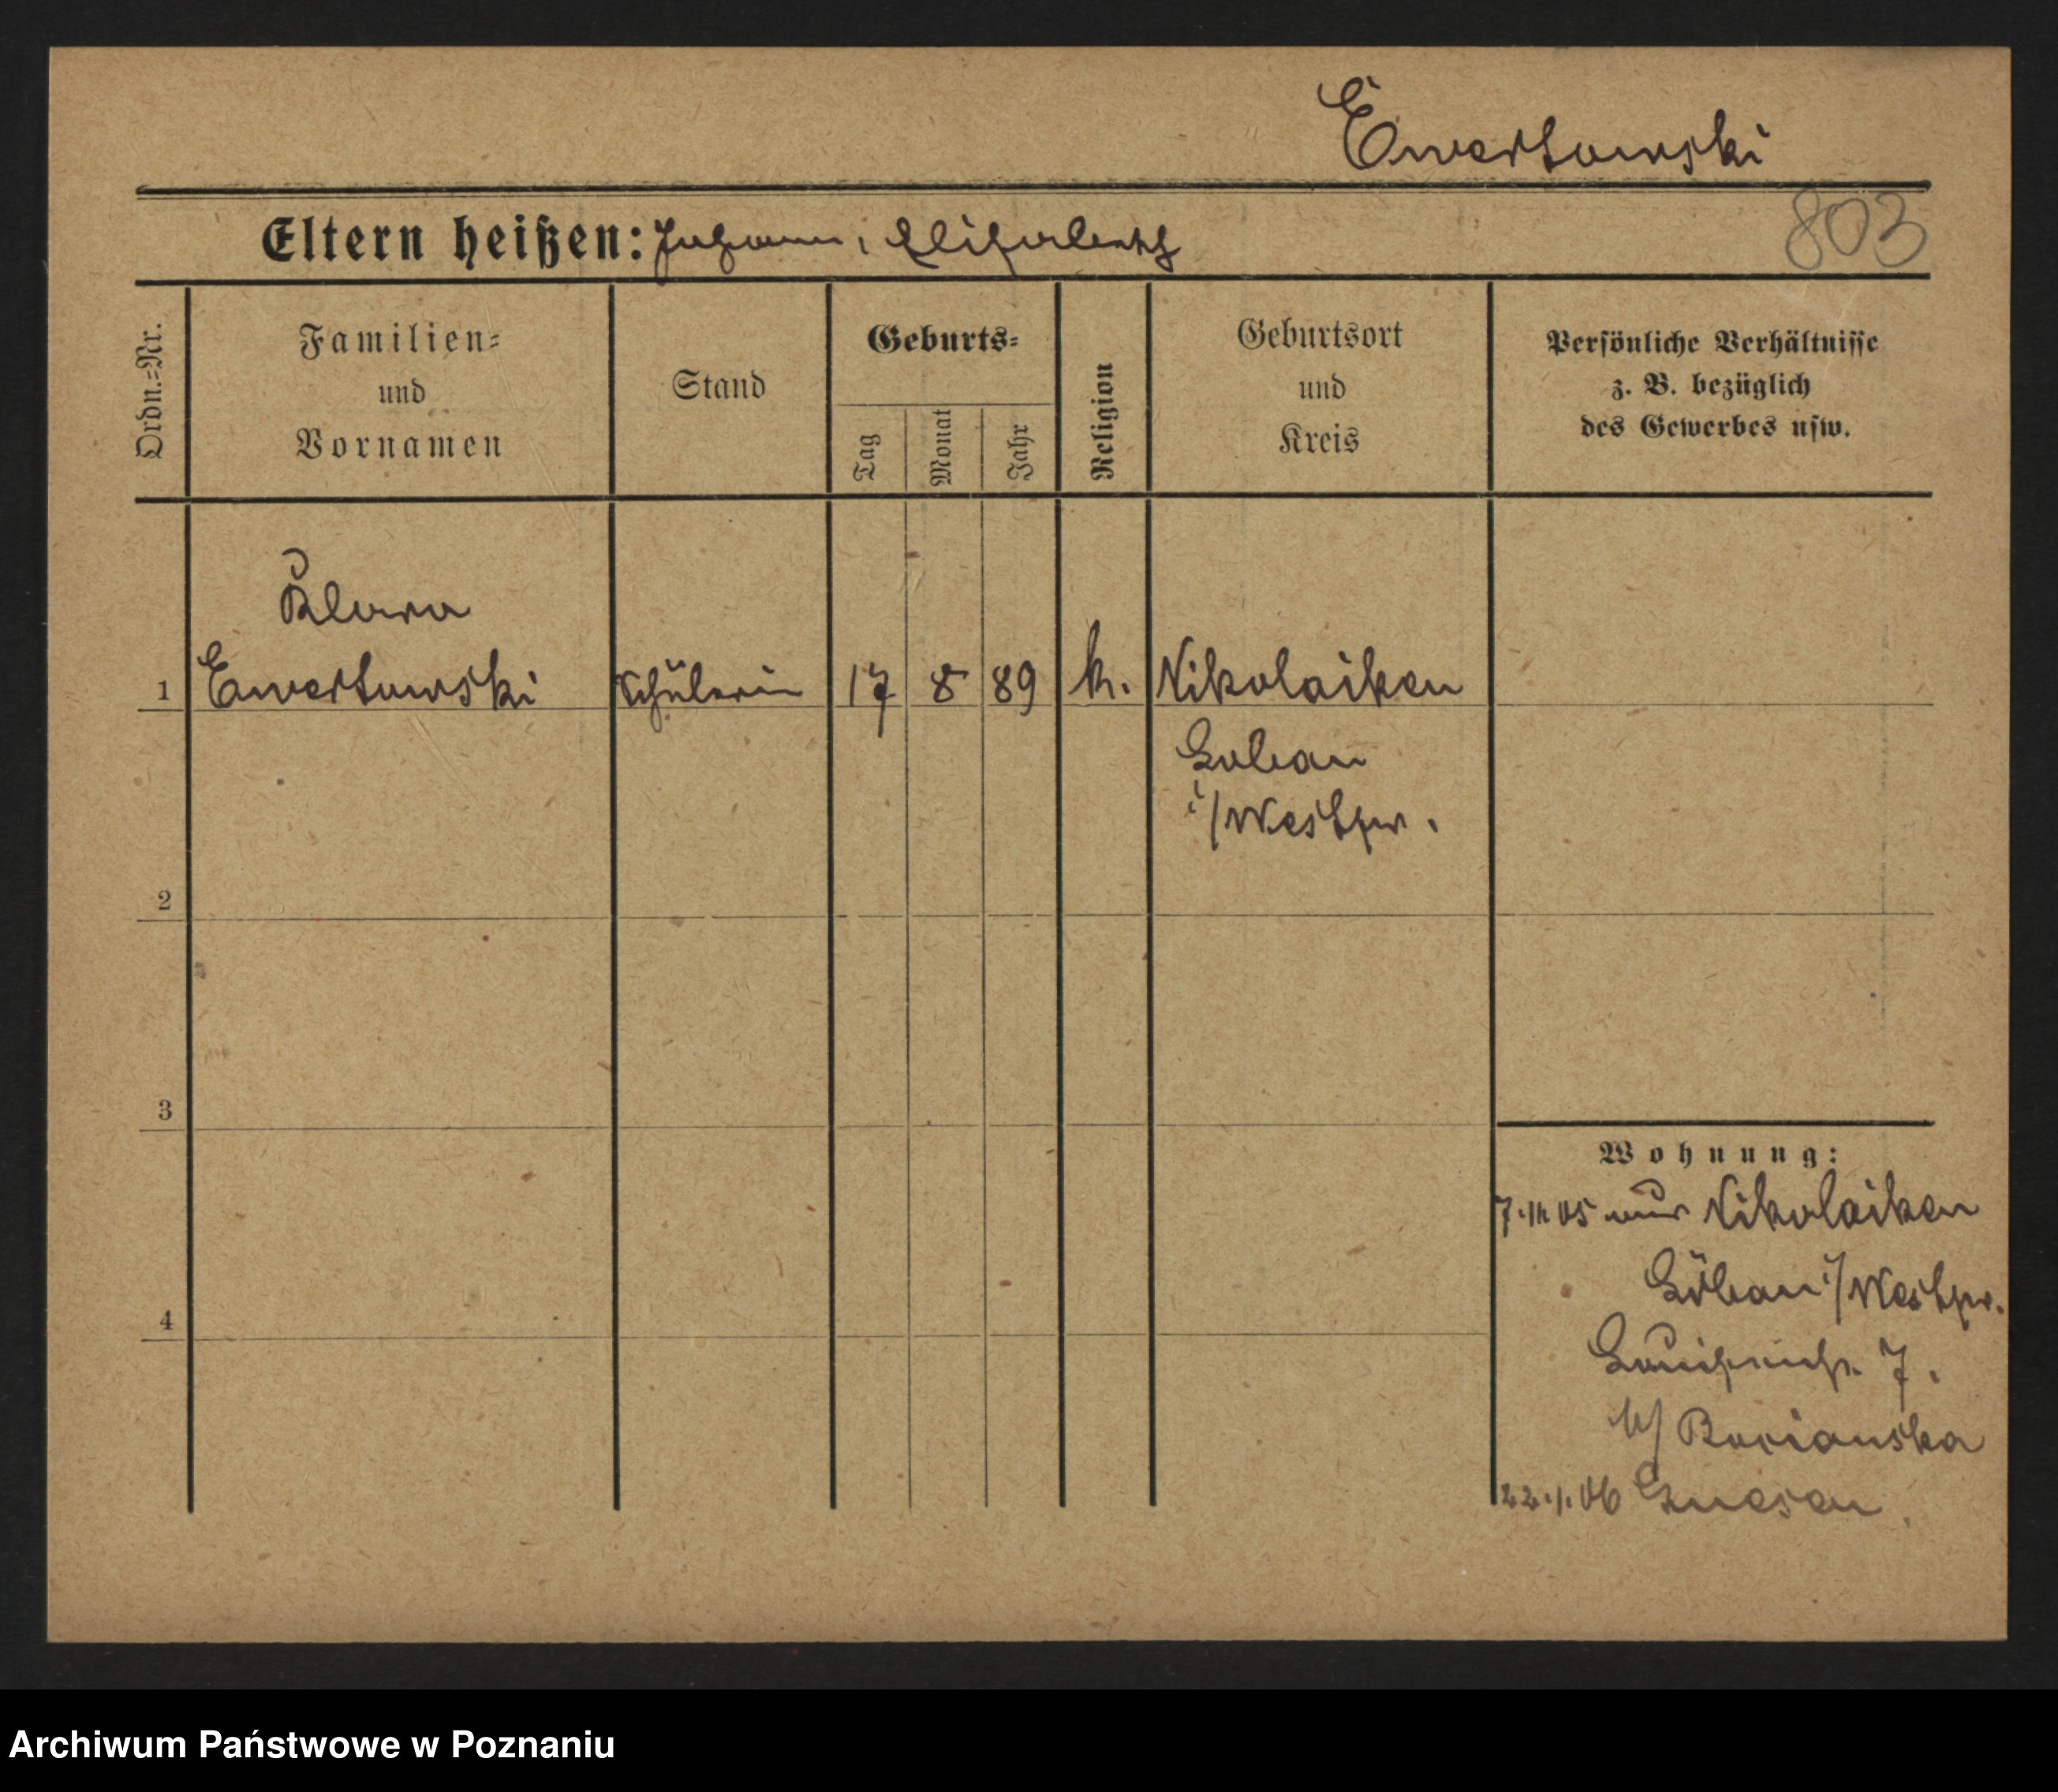 Ewertowski
803
Eltern heißen: Johann, Elisabeth
Ordn.=Nr.
Familien=
und
Vornamen
Stand
Geburts=
Tag
Monat
Jahr
Religion
Geburtsort
und
Kreis
Persönliche Verhältnisse
z. B. bezüglich
des Gewerbes usw.
Klara
1 Ewertowski Schülerin 17 8 89 k. Nikolaiken
Lobau
i/Westpr.
2
3
4
Wohnung:
7. 11. 05 aus Nikolaiken
Löbau i/Westpr.
7.
b/ Bocianska
22. 1. 06 Gnesen.
Archiwum Państwowe w Poznaniu